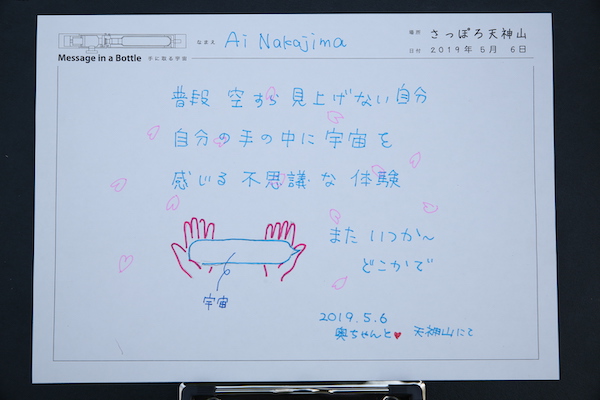 なまえ Ai Nakajima
場所 さっぽろ天神山
日付 2019年5月6日
Message in a Bottle 手に取る宇宙
普段 空すら見上げない自分
自分の手の中に宇宙を
感じる不思議な体験
また いつか〜
どこかで
宇宙
2019.5.6
奥ちゃんと♥ 天神山にて